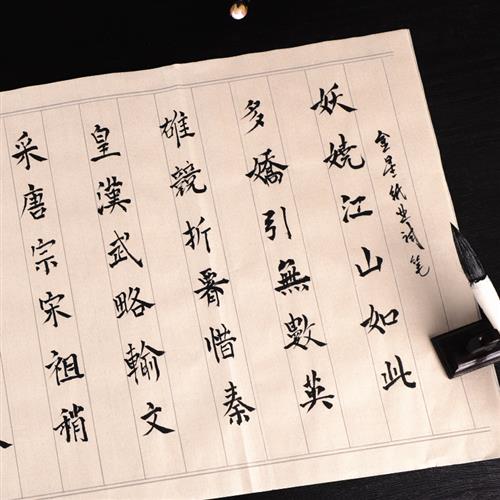 金星纸业试笔
妖嬈江山如此
多嬌引無數英
雄競折惜秦
皇漢武略輸文
采唐宗宋祖稍